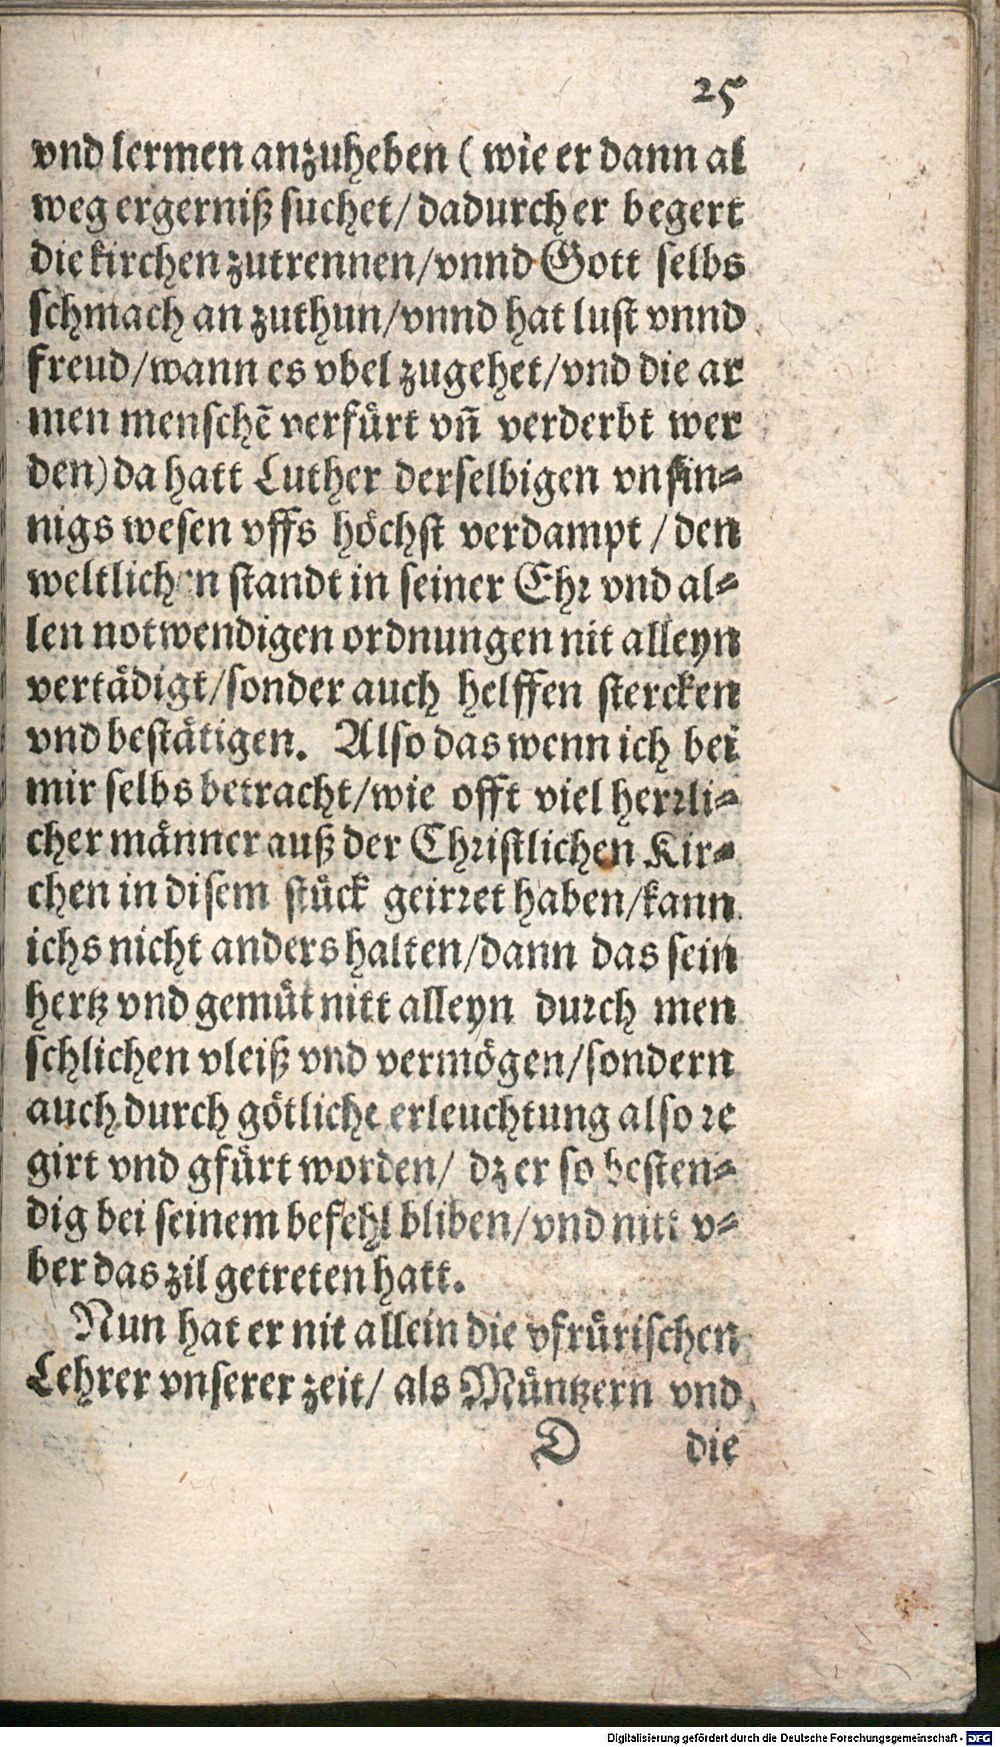 25
vnd lermen anzuheben ( wie er dann al
weg ergerniß suchet/ dadurch er begert
die kirchen zutrennen/vnnd Gott selbs
schmach an zuthun/vnnd hat lust vnnd
freud/wann es vbel zugehet/vnd die ar
men menschẽ verfuͤrt vñ verderbt wer
den) da hatt Luther derselbigen vnsin⸗
nigs wesen vffs hoͤchst verdampt / den
weltlichen standt in seiner Ehꝛ vnd al⸗
len notwendigen ordnungen nit alleyn
vertaͤdigt/sonder auch helffen stercken
vnd bestaͤtigen. Also das wenn ich bei
mir selbs betracht/wie offt viel herꝛli⸗
cher maͤnner auß der Chꝛistlichen Kir⸗
chen in disem stuͤck geirꝛet haben/kann
ichs nicht anders halten/dann das sein
hertz vnd gemuͤt nitt alleyn duꝛch men
schlichen vleiß vnd vermoͤgen/sondern
auch durch goͤtliche erleuchtung also ꝛe
girt vnd gfuͤrt worden/ dz er so besten⸗
dig bei seinem befehl bliben/vnd nitt v⸗
ber das zil getreten hatt.
Nun hat er nit allein die vfruͤrischen
Lehrer vnserer zeit/ als Muͤntzern vnd
D die
Digitalisierung gefördert durch die Deutsche Forschungsgemeinschaft - DFG